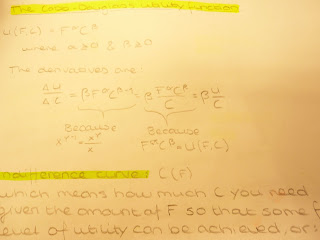 The Cobb-Douglass utility function
U(F,C) = F^α C^β
where α ≥ 0 & β ≥ 0
The derivatives are:
ΔU/ΔC = βF^α C^β-1 = β F^α C^β/C = β U/C
Because Because
x^y-1 = x^y/x F^α C^β = U(F,C)
Indifference curve: C(F)
which means how much C you need
given the amount of F so that some f
level of utility can be achieved, or: